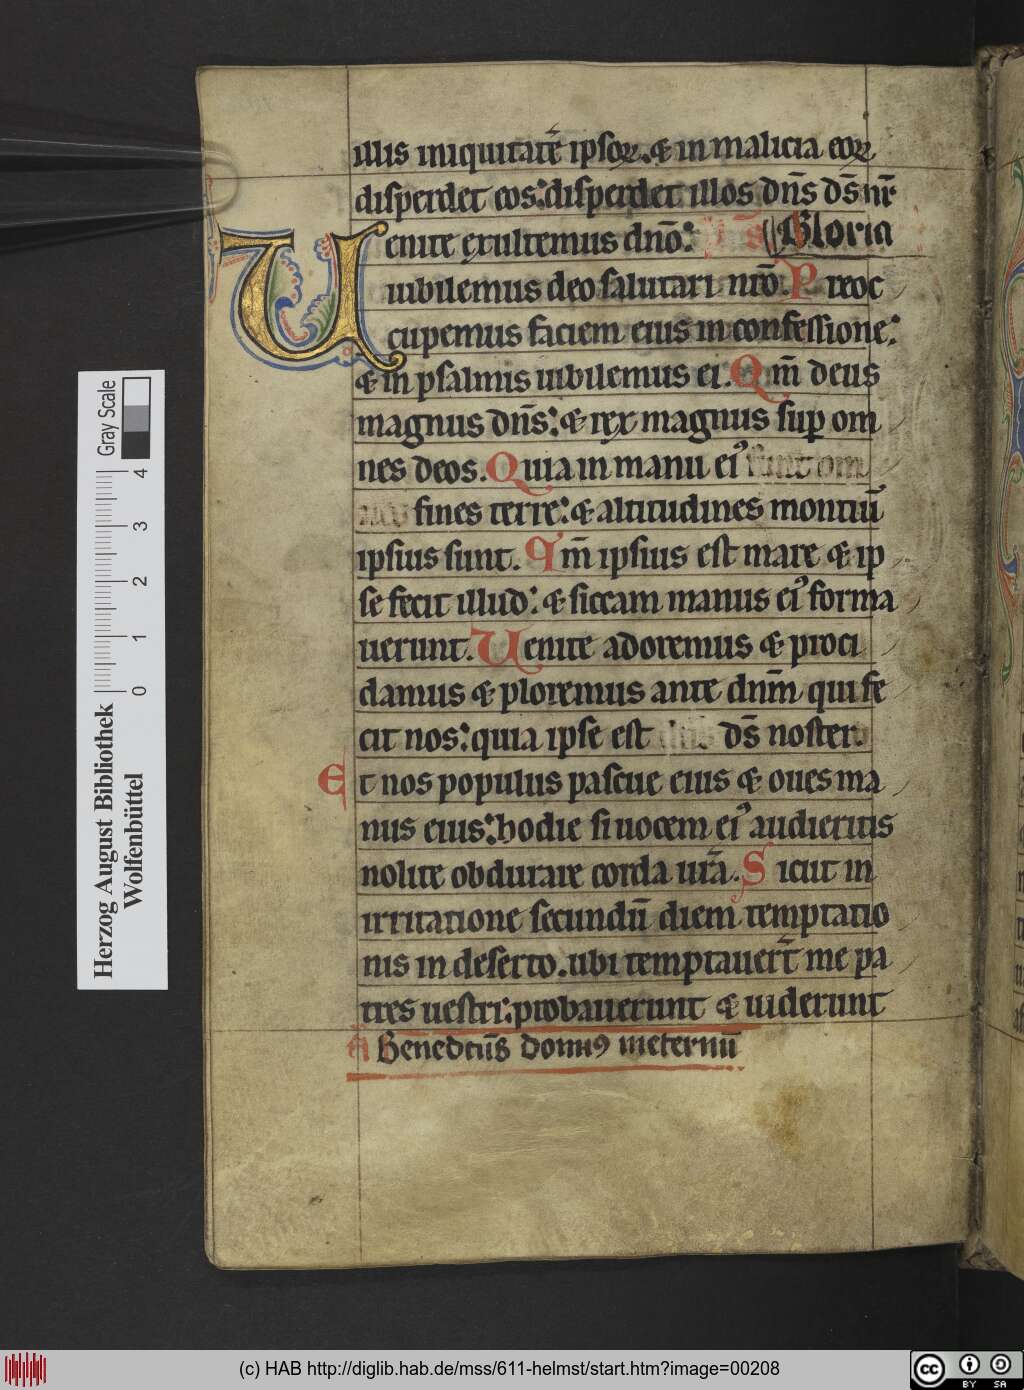 illis iniquitatē ipsoꝝ. ⁊ in malicia eoꝝ
disperdet eos: disperdet illos dn̄s ds̄ nr̄
Uenite exultemus dnō: Gloria
iubilemus deo salutari nrō. Preoc
cupemus faciem eius in confessione:
⁊ in psalmis iubilemus ei. Qm̄ deus
magnus dn̄s: ⁊ rex magnus sup om
nes deos. Quia in manu ei᾿ sunt om
nes fines terre: ⁊ altitudines montiū
ipsius sunt. Qm̄ ipsius est mare ⁊ ip
se fecit illud: ⁊ siccam manus ei᾿ forma
uerunt. Uenite adoremus ⁊ proci
damus ⁊ ploremus ante dnm̄ qui fe
cit nos: quia ipse est dn̄s ds̄ noster.
Et nos populus pascue eius ⁊ oues ma
nus eius: hodie si uocem ei᾿ audieritis
nolite obdurare corda ur̄a. Sicut in
irritatione secundū diem temptatio
nis in deserto. ubi temptauer̄t me pa
tres uestri: probauerunt ⁊ uiderunt
A Benedctūs domin᾿ ineternū
Herzog August Bibliothek
Wolfenbüttel
0 1 2 3 4
Gray Scale
(c) HAB http://diglib.hab.de/mss/611-helmst/start.htm?image=00208
cc BY SA